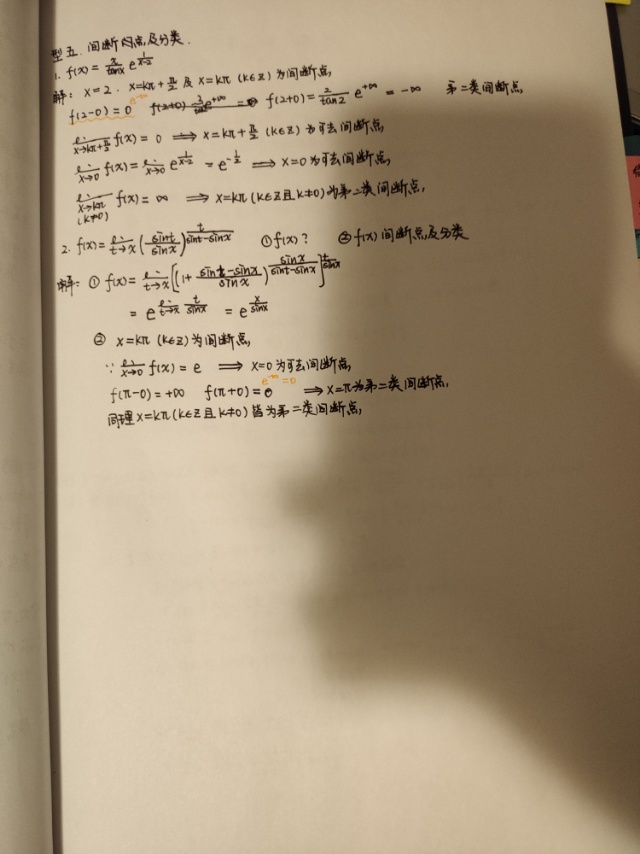 型五. 间断点及分类.
1. f(x) = x/tanx e^(1/(x-2))
解: x=2. x=kπ+π/2 及 x=kπ (k∈Z) 为间断点,
f(2-0)=0 e^(-∞) f(2+0)=2/tan2 e^(+∞) = -∞ 第二类间断点,
lim x→kπ+π/2 f(x)=0 ⟹ x=kπ+π/2 (k∈Z) 为可去间断点,
lim x→0 f(x)=lim x→0 e^(1/(x-2)) = e^(-1/2) ⟹ x=0 为可去间断点,
lim x→kπ (k≠0) f(x)=∞ ⟹ x=kπ (k∈Z且k≠0) 为第二类间断点,
2. f(x)=lim t→x (sint/sinx)^(t/(sint-sinx)) ①f(x)? ②f(x)间断点及分类
解: ① f(x)=lim t→x [(1+(sint-sinx)/sinx)^(sinx/(sint-sinx))]^(t/sinx)
= e^(lim t→x t/sinx) = e^(x/sinx)
② x=kπ (k∈Z) 为间断点,
∵ lim x→0 f(x)=e ⟹ x=0 为可去间断点,
f(π-0)=+∞ f(π+0)=0 e^(-∞)=0 ⟹ x=π为第二类间断点,
同理 x=kπ (k∈Z且k≠0) 皆为第二类间断点,